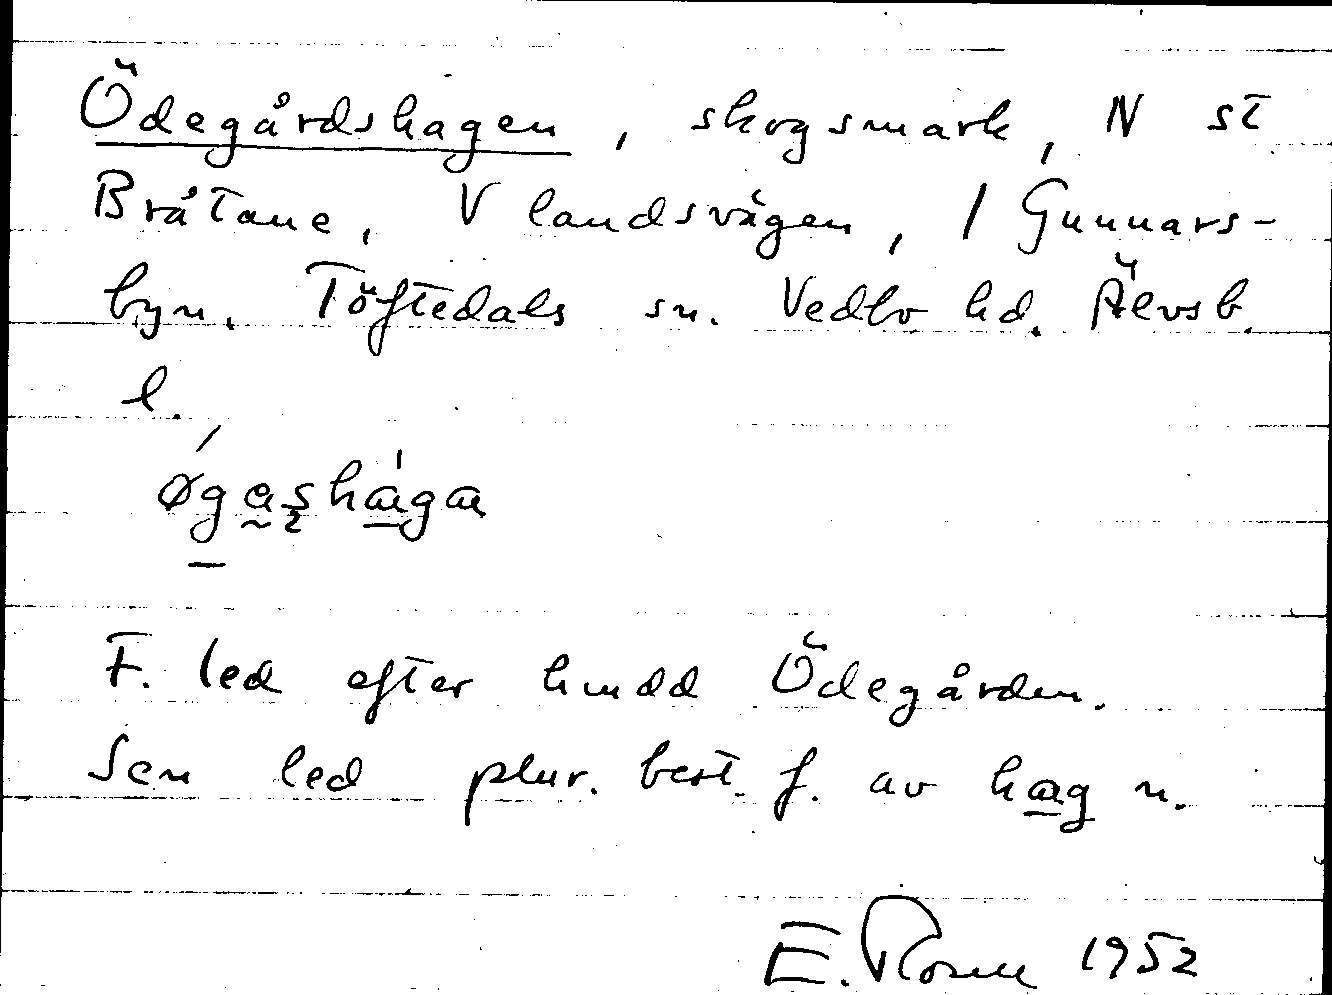 Ödegårdshagen, skogsmark, N st
Bråtane, V landsvägen, i Gunnars-
byn. Töftedals sn. Vedbo hd. Älvsb.
l.
F. led efter hmdd Ödegården.
Sen led plur. best. f. av hag n.
E. 1952